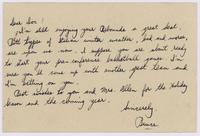 Dear Son!
I'm still enjoying your Rebounds a great deal.
All types of winter weather, bad and worse,
are upon me now. I suppose you are about ready
to start your pre-conference basketball games. I'm
sure you'll come up with another great team and
I'm betting on you.
Best wishes to you and Mrs. Allen for the Holiday
Season and the coming year.
Sincerely,
Bruce